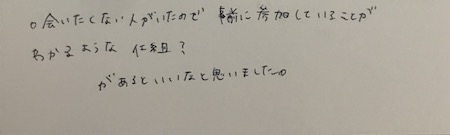 ○会いたくない人がいたので 事前に参加していることが
わかるような 仕組?
があるといいなと思いました。